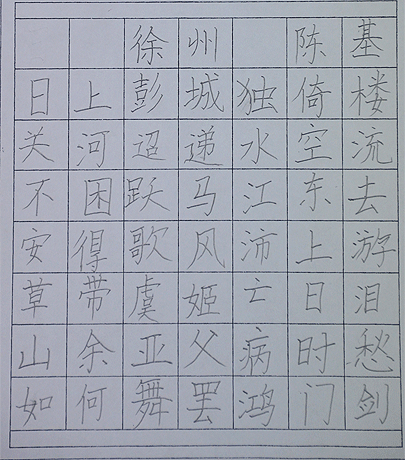 徐州 陈基
日上彭城独倚楼
关河迢递水空流
不困跃马江东去
安得歌风沛上游
草带虞姬亡日泪
山余亚父病时愁
如何舞罢鸿门剑